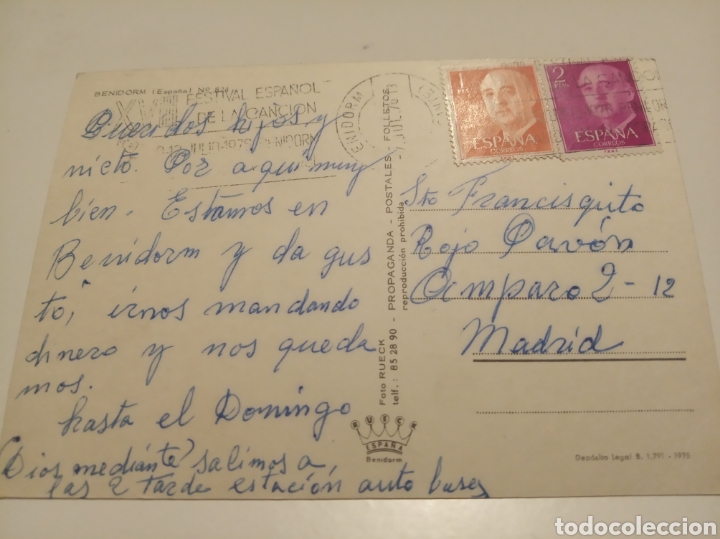 BENIDORM (España) Nº
XVIII FESTIVAL ESPAÑOL
DE LA CANCION
JULIO-1976 BENIDORM
BENIDORM
Queridos hijos y
nieto. Por aqui muy
bien. Estamos en
Benidorm y da gus
to, irnos mandando
dinero y nos queda
mos.
hasta el Domingo
(Dios mediante) salimos a
las 2 tarde estación autobuses
Foto RUECK - PROPAGANDA - POSTALES - FOLLETOS
telf.: 85 28 90 - reproducción prohibida
RUECK
ESPAÑA
Benidorm
1
ESPAÑA
CORREOS
2
ESPAÑA
CORREOS
Sto Francisquito
Rojo Pavón
Amparo 2-12
Madrid
Depósito Legal B. 1.791 - 1975
todocoleccion